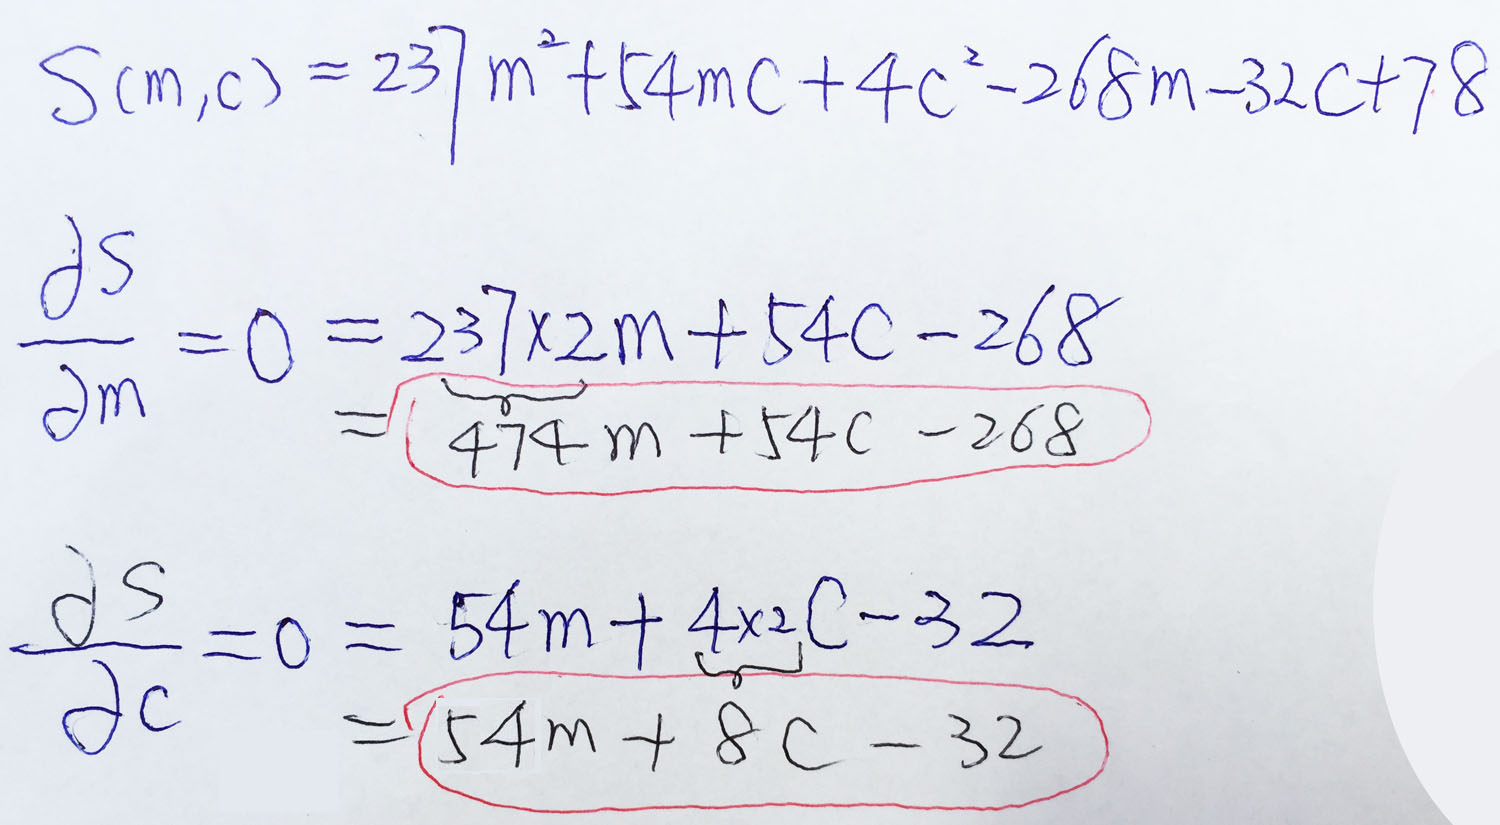 S(m,c) = 237m²+54mc+4c²-268m-32c+78
∂S/∂m = 0 = 237×2m+54c-268
= 474m+54c-268
∂S/∂c = 0 = 54m+4×2c-32
= 54m+8c-32